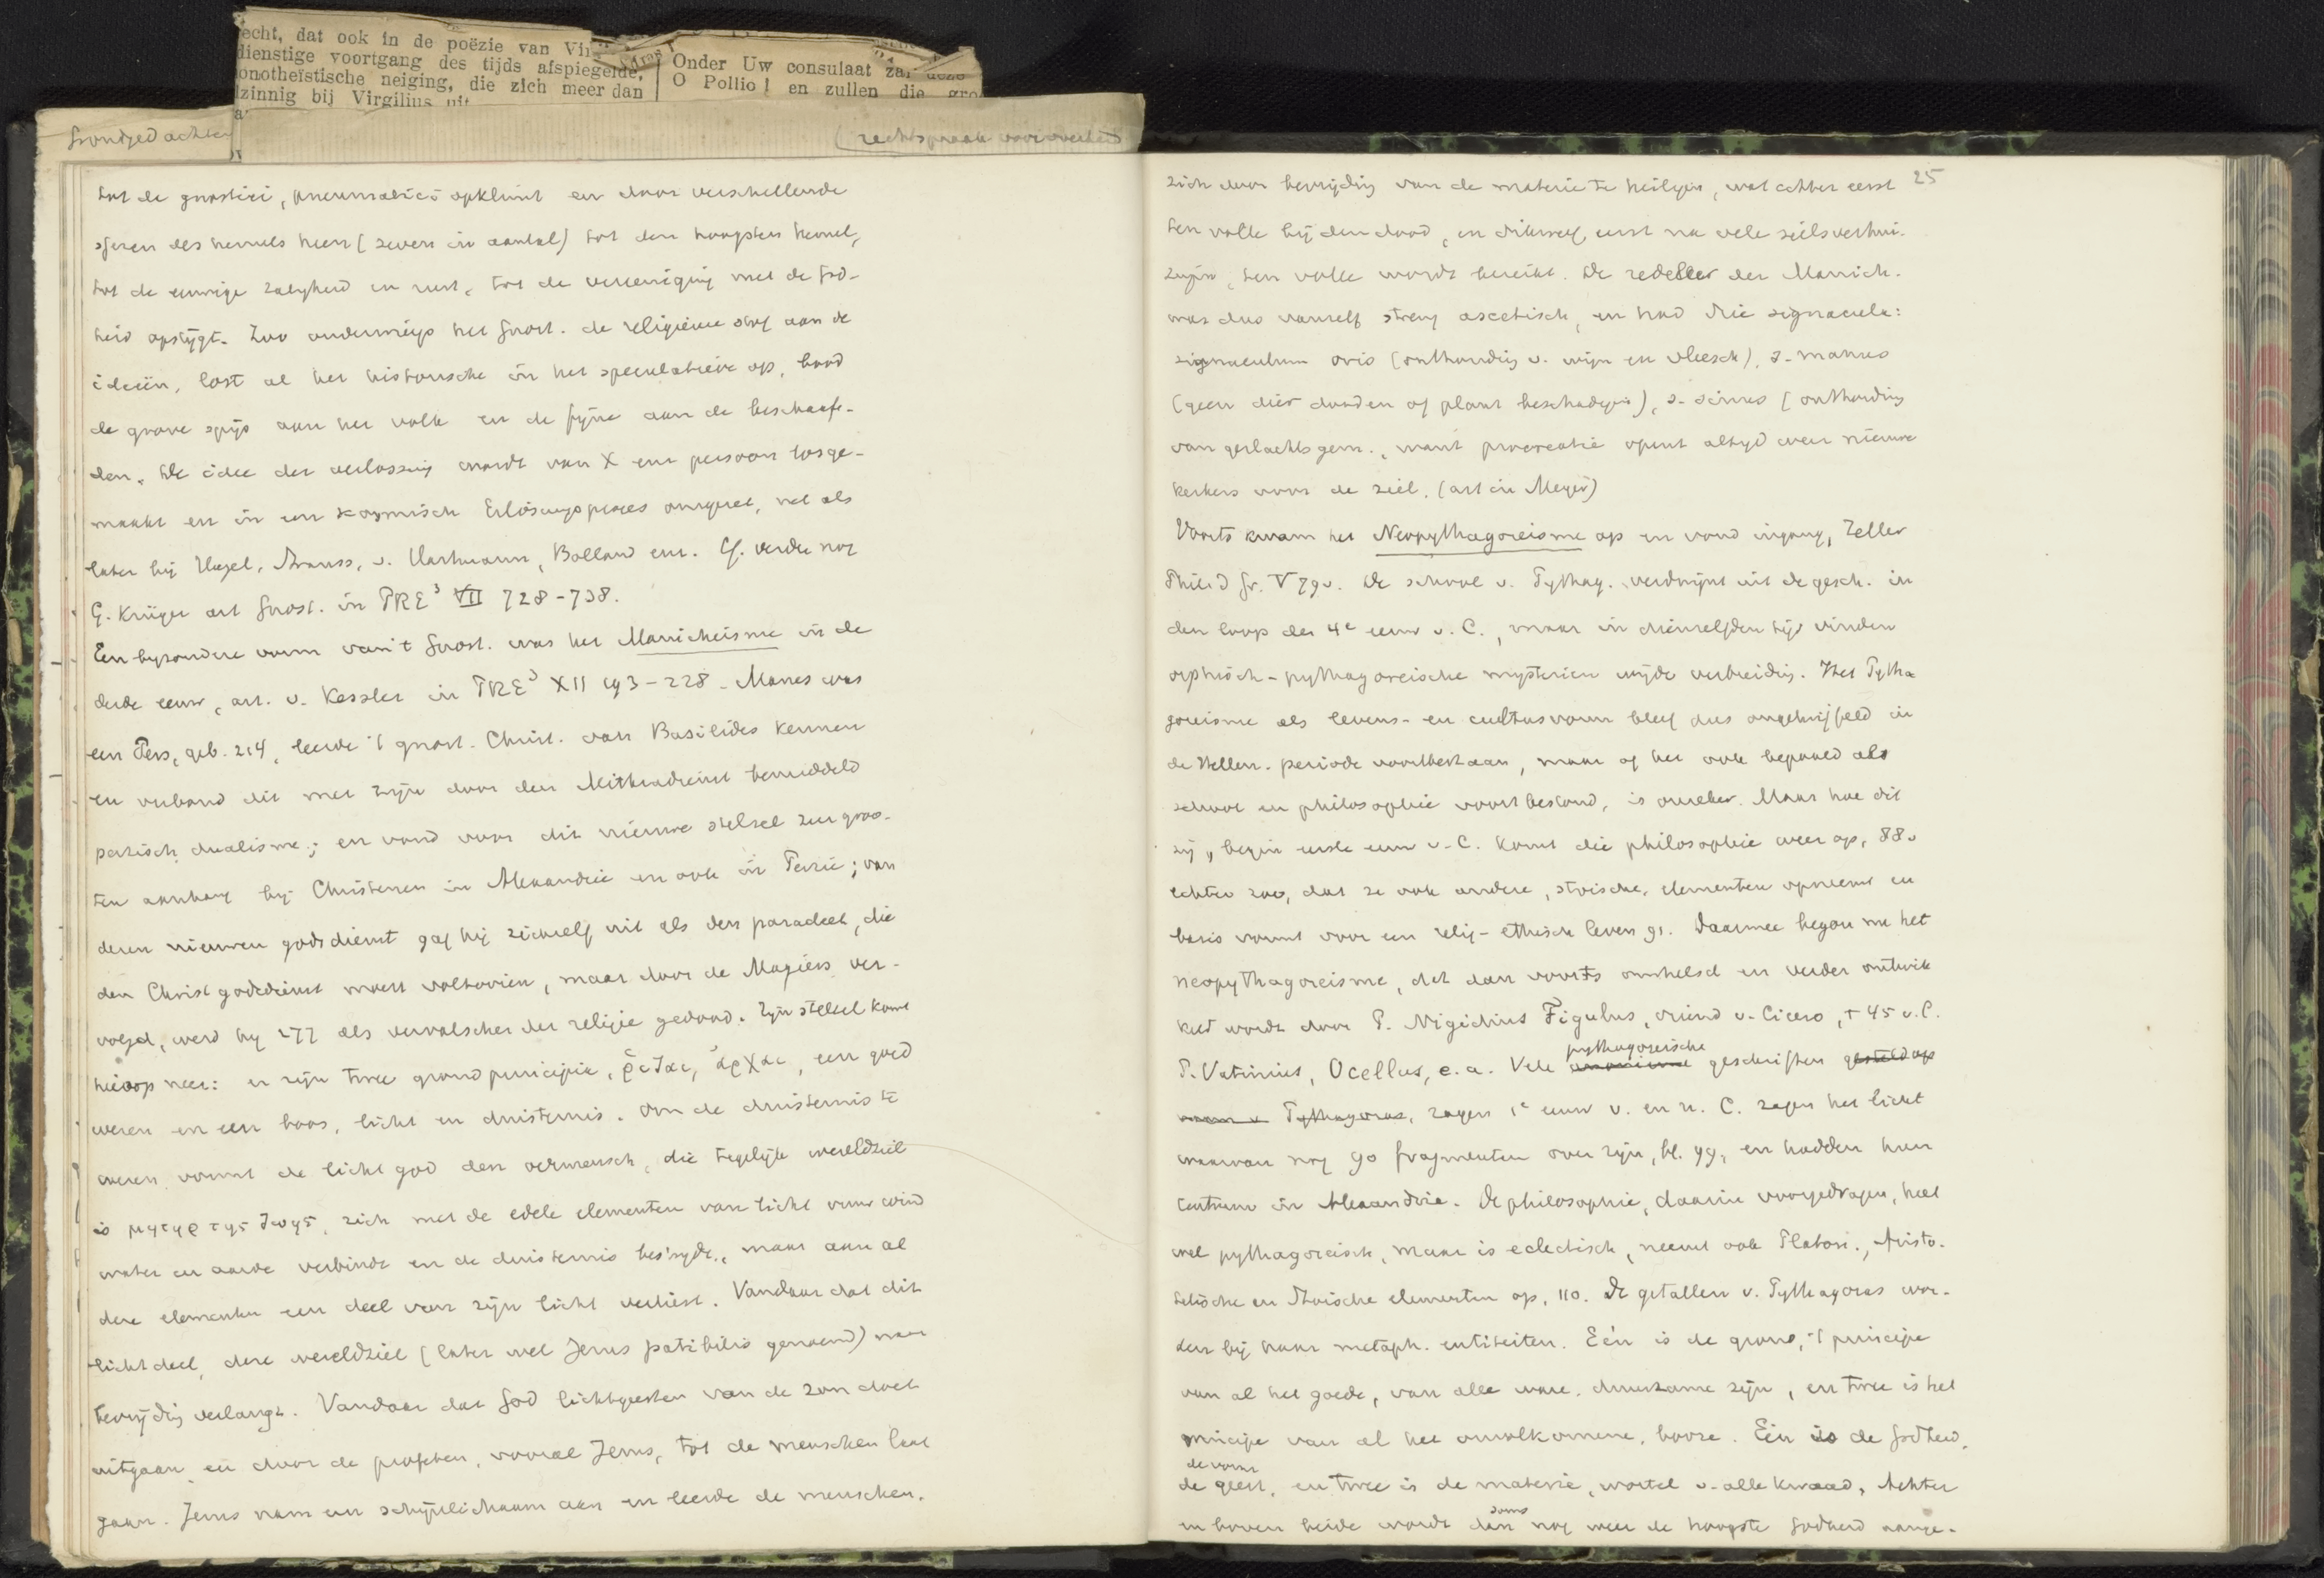 echt, dat ook in de poëzie van Vir
dienstige voortgang des tijds afspiegelde,
onotheïstische neiging, die zich meer dan
zinnig bij Virgilius uit
Onder Uw consulaat zal deze
O Pollio! en zullen die gro
Grondgedachten
(rechtspraak voor overheid
tot de gnostici, pneumatici opklimt en door verschillende
sferen des hemels heen (zeven in aantal) tot den hoogsten hemel,
tot de eeuwige zaligheid en rust, tot de vereeniging met de God-
heid opstijgt. Zoo ondermijnt het Gnost. de religieuse stof aan de
ideeën, lost al het historische in het speculatieve op, bood
de grove spijs aan het volk en de fijne aan de beschaaf-
den. De idee der verlossing wordt van X een persoon losge-
maakt en in een kosmisch Erlösungsprozes omgezet, net als
later bij Hegel, Strauss, v. Hartmann, Bolland enz. Cf. verder nog
G. Krüger art Gnost. in PRE³ VII 728-738.
Een byzondere vorm van 't Gnost. was het Manicheisme in de
derde eeuw, art. v. Kessler in PRE³ XII 193-228. Manes was
een Pers, geb. 214, leerde 't gnost. Christ. van Basilides kennen
en verbond dit met zijn door den Mithradienst bemiddeld
parzisch dualisme; en vond voor dit nieuwe stelsel een groo-
ten aanhang bij Christenen in Alexandrie en ook in Perzie; van
dezen nieuwen godsdienst gaf hij zichzelf uit als den paracleet, die
den Christ godsdienst moest voltooien, maar door de Magiers ver-
volgd, werd hy 277 als vervalscher der religie gedood. Zijn stelsel komt
hierop neer: er zijn twee grondprincipie, ῥιζαι, ἀρχαι, een goed
wezen en een boos, licht en duisternis. Om de duisternis te
weren vormt de lichtgod den oermensch, die tegelijk wereldziel
is μητηρ της ζωης, zich met de edele elementen van licht vuur wind
water en aarde verbindt en de duisternis bestrijdt, maar aan al
deze elementen een deel van zijn licht verliest. Vandaar dat dit
lichtdeel, deze wereldziel (later wel Jezus patibilis genoemd) naar
bevrijding verlangt. Vandaar dat God lichtgeesten van de zon doet
uitgaan en door de profeten, vooral Jezus, tot de menschen laat
gaan. Jezus nam een schijnlichaam aan en leerde de menschen,
25
zich door bevrijding van de materie te heiligen, wat echter eerst
ten volle bij den dood, en dikwerf eerst na vele zielsverhui-
zingen, ten volle wordt bereikt. De zedeleer der Manich.
was dus vanzelf streng ascetisch, en had drie signacula:
signaculum oris (onthouding v. wijn en vleesch), s. manus
(geen dier dooden of plant beschadigen), s. sinus (onthouding
van geslachtsgem., want procreatie opent altijd weer nieuwe
kerkers voor de ziel. (art in Meyer)
Voorts kwam het Neopythagoreisme op en vond ingang, Zeller
Philos d Gr. V 79v. De school v. Pythag. verdwijnt uit de gesch. in
den loop der 4e eeuw v. C., maar in dienzelfden tijd vinden
orphisch-pythagoreische mysterien wijde verbreiding. Het Pytha
goreisme als levens- en cultusvorm bleef dus ongetwijfeld in
de Hellen. periode voortbestaan, maar of het ook bepaald als
school en philosophie voortbestond, is onzeker. Maar hoe dit
zij, begin eerste eeuw v. C. komt die philosophie weer op, 88v
echter zoo, dat ze ook andere, stoische, elementen opneemt en
basis vormt voor een relig-ethisch leven 91. Daarmee begon nu het
neopythagoreisme, dat dan voorts omhelsd en verder ontwik
keld wordt door P. Nigidius Figulus, vriend v. Cicero, † 45 v.C.
P. Vatinius, Ocellus, e.a. Vele pythagoreische geschriften gesteld op
naam v Pythagoras, zagen 1e eeuw v. en n. C. zagen het licht
waarvan nog 90 fragmenten over zijn, bl. 99, en hadden hun
centrum in Alexandrie. De philosophie, daarin voorgedragen, heet
wel pythagoreisch, maar is eclectisch, neemt ook Platon., Aristo-
telische en Stoische elementen op, 110. De getallen v. Pythagoras wor-
den bij haar metaph. entiteiten. Eén is de grond, 't principe
van al het goede, van alle ware, duurzame zijn, en twee is het
principe van al het onvolkomene, booze. Eén is de Godheid,
de vorm
de geest, en twee is de materie, wortel v. alle kwaad. Achter
en boven beide wordt dan soms nog weer de hoogste Godheid aange-